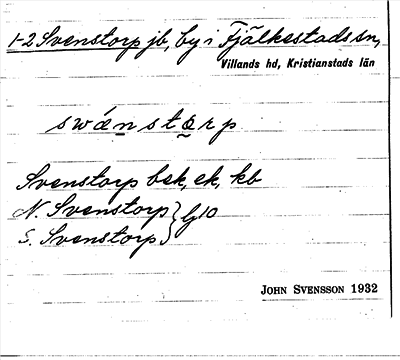 1-2 Svenstorp jb, by i Fjälkestads sn,
Villands hd, Kristianstads län
swǽnstọrp
Svenstorp bek, ek, kb
N. Svenstorp } lj 10
S. Svenstorp
JOHN SVENSSON 1932